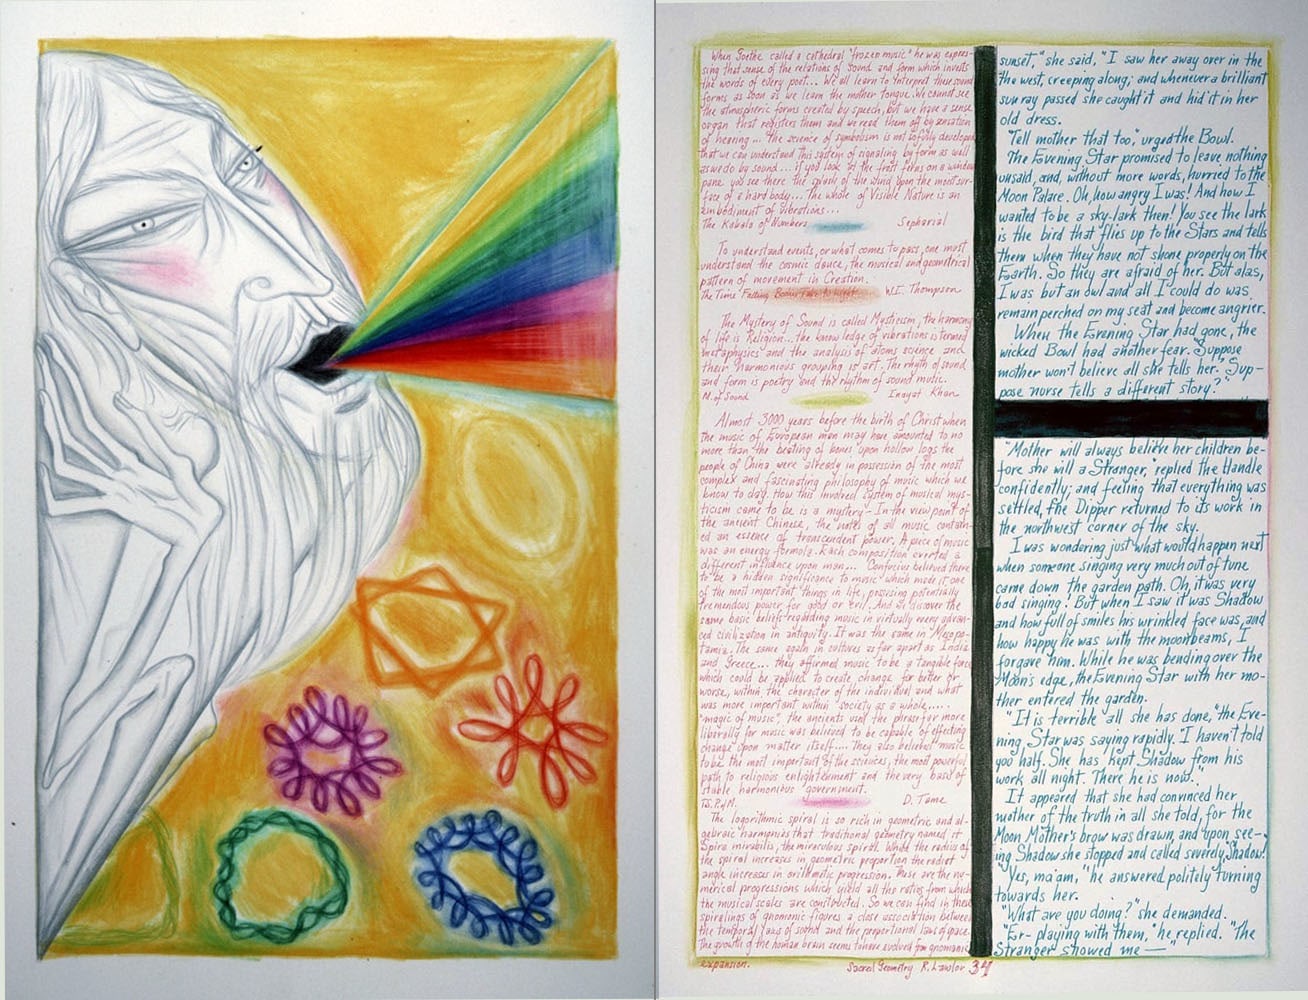 When Goethe called a cathedral "frozen music" he was expres-
sing that sense of the relations of sound and form which invests
the words of every poet... We all learn to interpret these sound
forms as soon as we learn the mother tongue. We cannot see
the atmospheric forms created by speech, but we have a sense
organ that registers them and we read them off by sensation
of hearing... The science of symbolism is not so fully developed
that we can understand this system of signaling by form as well
as we do by sound... if you look at the frost films on a window
pane you see there the splash of the wind upon the most sur-
face of a hard body... The whole of Visible Nature is an
embodiment of vibrations...
The Kabala of Numbers Sepharial
To understand events, or what comes to pass, one must
understand the cosmic dance, the musical and geometrical
pattern of movement in Creation.
The Time Falling Bodies Take to Light W.I. Thompson
The Mystery of Sound is called Mysticism, the harmony
of life is Religion... the knowledge of vibrations is termed
metaphysics and the analysis of atoms science and
their harmonious grouping is art. The rhyth of sound
and form is poetry and the rhythm of sound music.
M. of Sound Inayat Khan
Almost 3000 years before the birth of Christ when
the music of European man may have amounted to no
more than the beating of bones upon hollow logs the
people of China were already in possession of the most
complex and fascinating philosophy of music which we
know to day. How this involved system of musical mys-
ticism came to be is a mystery - In the view point of
the ancient Chinese, the notes of all music contain-
ed an essence of transcendent power. A piece of music
was an energy formula. Each composition exerted a
different influence upon man... Confucius believed there
to be a hidden significance to music which made it one
of the most important things in life, possesing potentially
tremendous power for good or evil. And we discover the
same basic beliefs regarding music in virtually every advan-
ced civilization in antiquity. It was the same in Mesopo-
tamia. The same again in cultures as far apart as India
and Greece... they affirmed music to be a tangible force
which could be applied to create change for better or
worse, within the character of the individual and what
was more important within society as a whole,....
"magic of music", the ancients used the phrase far more
liberally for music was believed to be capable of effecting
change upon matter itself.... They also believed music
to be the most important of the sciences, the most powerful
path to religious enlightenment and the very basis of
stable harmonious government.
T.S.P. of M. D. Tame
The logorithmic spiral is so rich in geometric and al-
gebraic harmonias that traditional geometry named it
Spira mirabilis, the miraculous spiral. Whild the radius of
the spiral increases in geometric proportion the radial
angle increases in arithmetic progression. These are the nu-
merical progressions which yield all the ratios from which
the musical scales are constructed. So we can find in these
spiralings of gnomonic figures a close association between
the temporal laws of sound and the proportional laws of space.
The growth of the human brain seems to have evolved from gnomonic
expansion. Sacred Geometry R. Lawlor 34
sunset," she said, "I saw her away over in the
the west, creeping along; and whenever a brilliant
sun ray passed she caught it and hid it in her
old dress.
"Tell mother that too," urged the Bowl.
The Evening Star promised to leave nothing
unsaid, and, without more words, hurried to the
Moon Palace. Oh, how angry I was! And how I
wanted to be a sky-lark then! You see the lark
is the bird that flies up to the Stars and tells
them when they have not shone properly on the
Earth. So they are afraid of her. But alas,
I was but an owl and all I could do was
remain perched on my seat and become angrier.
When the Evening Star had gone, the
wicked Bowl had another fear. "Suppose
mother won't believe all she tells her." "Sup-
pose nurse tells a different story?"
"Mother will always believe her children be-
fore she will a Stranger," replied the Handle
confidently; and feeling that everything was
settled, the Dipper returned to its work in
the northwest corner of the sky.
I was wondering just what would happen next
when someone singing very much out of tune
came down the garden path. Oh, it was very
bad singing! But when I saw it was Shadow
and how full of smiles his wrinkled face was, and
how happy he was with the moonbeams, I
forgave him. While he was bending over the
Moon's edge, the Evening Star with her mo-
ther entered the garden.
"It is terrible all she has done," the Eve-
ning Star was saying rapidly. "I haven't told
you half. She has kept Shadow from his
work all night. There he is now."
It appeared that she had convinced her
mother of the truth in all she told, for the
Moon Mother's brow was drawn, and upon see-
ing Shadow she stopped and called severely, "Shadow!
"Yes, ma'am," he answered politely turning
towards her.
"What are you doing?" she demanded.
"Er- playing with them," he replied. "The
Stranger showed me —"